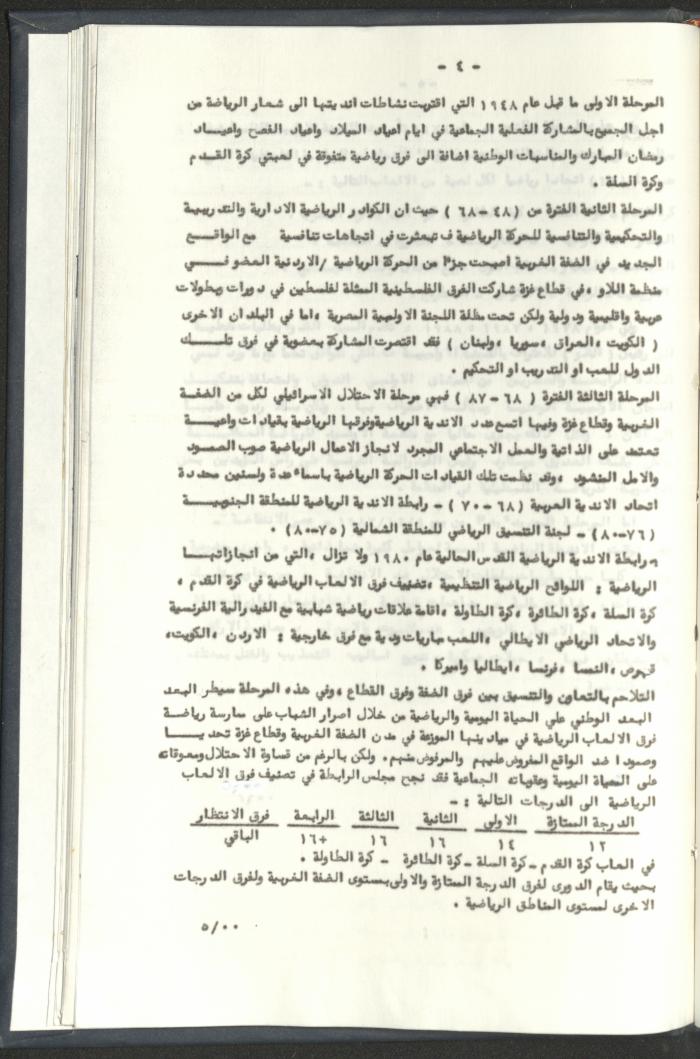 - ٤ -
المرحلة الاولى ما قبل عام ١٩٤٨ التي اقتربت نشاطات انديتها الى شعار الرياضة من
اجل الجميع بالمشاركة الفعلية الجماعية في ايام اعياد الميلاد واعياد الفصح واعيــاد
رمضان المبارك والمناسبات الوطنية اضافة الى فرق رياضية متفوقة في لعبتي كرة القـدم
وكرة السلة .
المرحلة الثانية الفترة من (٤٨-٦٨ ) حيث ان الكوادر الرياضية الادارية والتدريبيـة
والتحكيمية والتنافسية للحركة الرياضية ف تبعثرت في اتجاهات تنافسية مع الواقــع
الجديد في الضفة الغربية اصبحت جزءا من الحركة الرياضية /الاردنية العضو فــي
منظمة اللاو ،في قطاع غزة شاركت الفرق الفلسطينية الممثلة لفلسطين في دورات وبطولات
عربية واقليمية ودولية ولكن تحت مظلة اللجنة الاولمبية المصرية ،اما في البلدان الاخرى
( الكويت ،العراق ،سوريا ،ولبنان ) فقد اقتصرت المشاركة بعضوية في فرق تلــك
الدول للعب او التدريب او التحكيم .
المرحلة الثالثة الفترة ( ٦٨-٨٧ ) فهي مرحلة الاحتلال الاسرائيلي لكل من الضفــة
الغربية وقطاع غزة وفيها اتسع عدد الاندية الرياضيةوفرقها الرياضية بقيادات واعيــة
تعتمد على الذاتية والعمل الاجتماعي المجرد لانجاز الاعمال الرياضية صوب الصمــود
والامل المنشود ،وقد نظمت تلك القيادات الحركة الرياضية باسماء عدة ولسنين محددة
اتحاد الاندية العربية (٦٨ -٧٠ ) - رابطة الاندية الرياضية للمنطقة الجنوبيــة
(٧٦-٨٠) - لجنة التنسيق الرياضي للمنطقة الشمالية (٧٥-٨٠) .
رابطة الاندية الرياضية القدس الحالية عام ١٩٨٠ ولا تزال ،التي من انجازاتهــا
الرياضية : اللوائح الرياضية التنظيمية ،تصنيف فرق الالعاب الرياضية في كرة القدم ،
كرة السلة ،كرة الطائرة ،كرة الطاولة ،اقامة علاقات رياضية شبابية مع الفيدرالية الفرنسية
والاتحاد الرياضي الايطالي ،اللعب مباريات ودية مع فرق خارجية : الاردن ،الكويت،
قبرص ،النمسا ،فرنسا ،ايطاليا واميركا .
التلاحم بالتعاون والتنسيق بين فرق الضفة وفرق القطاع ،وفي هذه المرحلة سيطر البعد
البعد الوطني علي الحياة اليومية والرياضية من خلال اصرار الشباب على ممارسة رياضـة
فرق الالعاب الرياضية في ميادينها الموزعة في مدن الضفة الغربية وقطاع غزة تحديــا
وصمودا ضد الواقع المفروض عليهم والمرفوض منهم. ولكن بالرغم من قساوة الاحتلال ومعوقاته
على الحياة اليومية وعقوباته الجماعية فقد نجح مجلس الرابطة في تصنيف فرق الالعاب
الرياضية الى الدرجات التالية : -
الدرجة الممتازة الاولى الثانية الثالثة الرابعة فرق الانتظار
١٢ ١٤ ١٦ ١٦ ١٦+ الباقي
في العاب كرة القدم -كرة السلة -كرة الطائرة - كرة الطاولة .
بحيث يقام الدورى لفرق الدرجة الممتازة والاولى بمستوى الضفة الغربية ولفرق الدرجات
الاخرى لمستوى المناطق الرياضية .
٥/٠٠